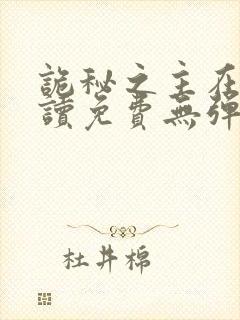 詭秘之主在
讀免費無彈
杜井棉